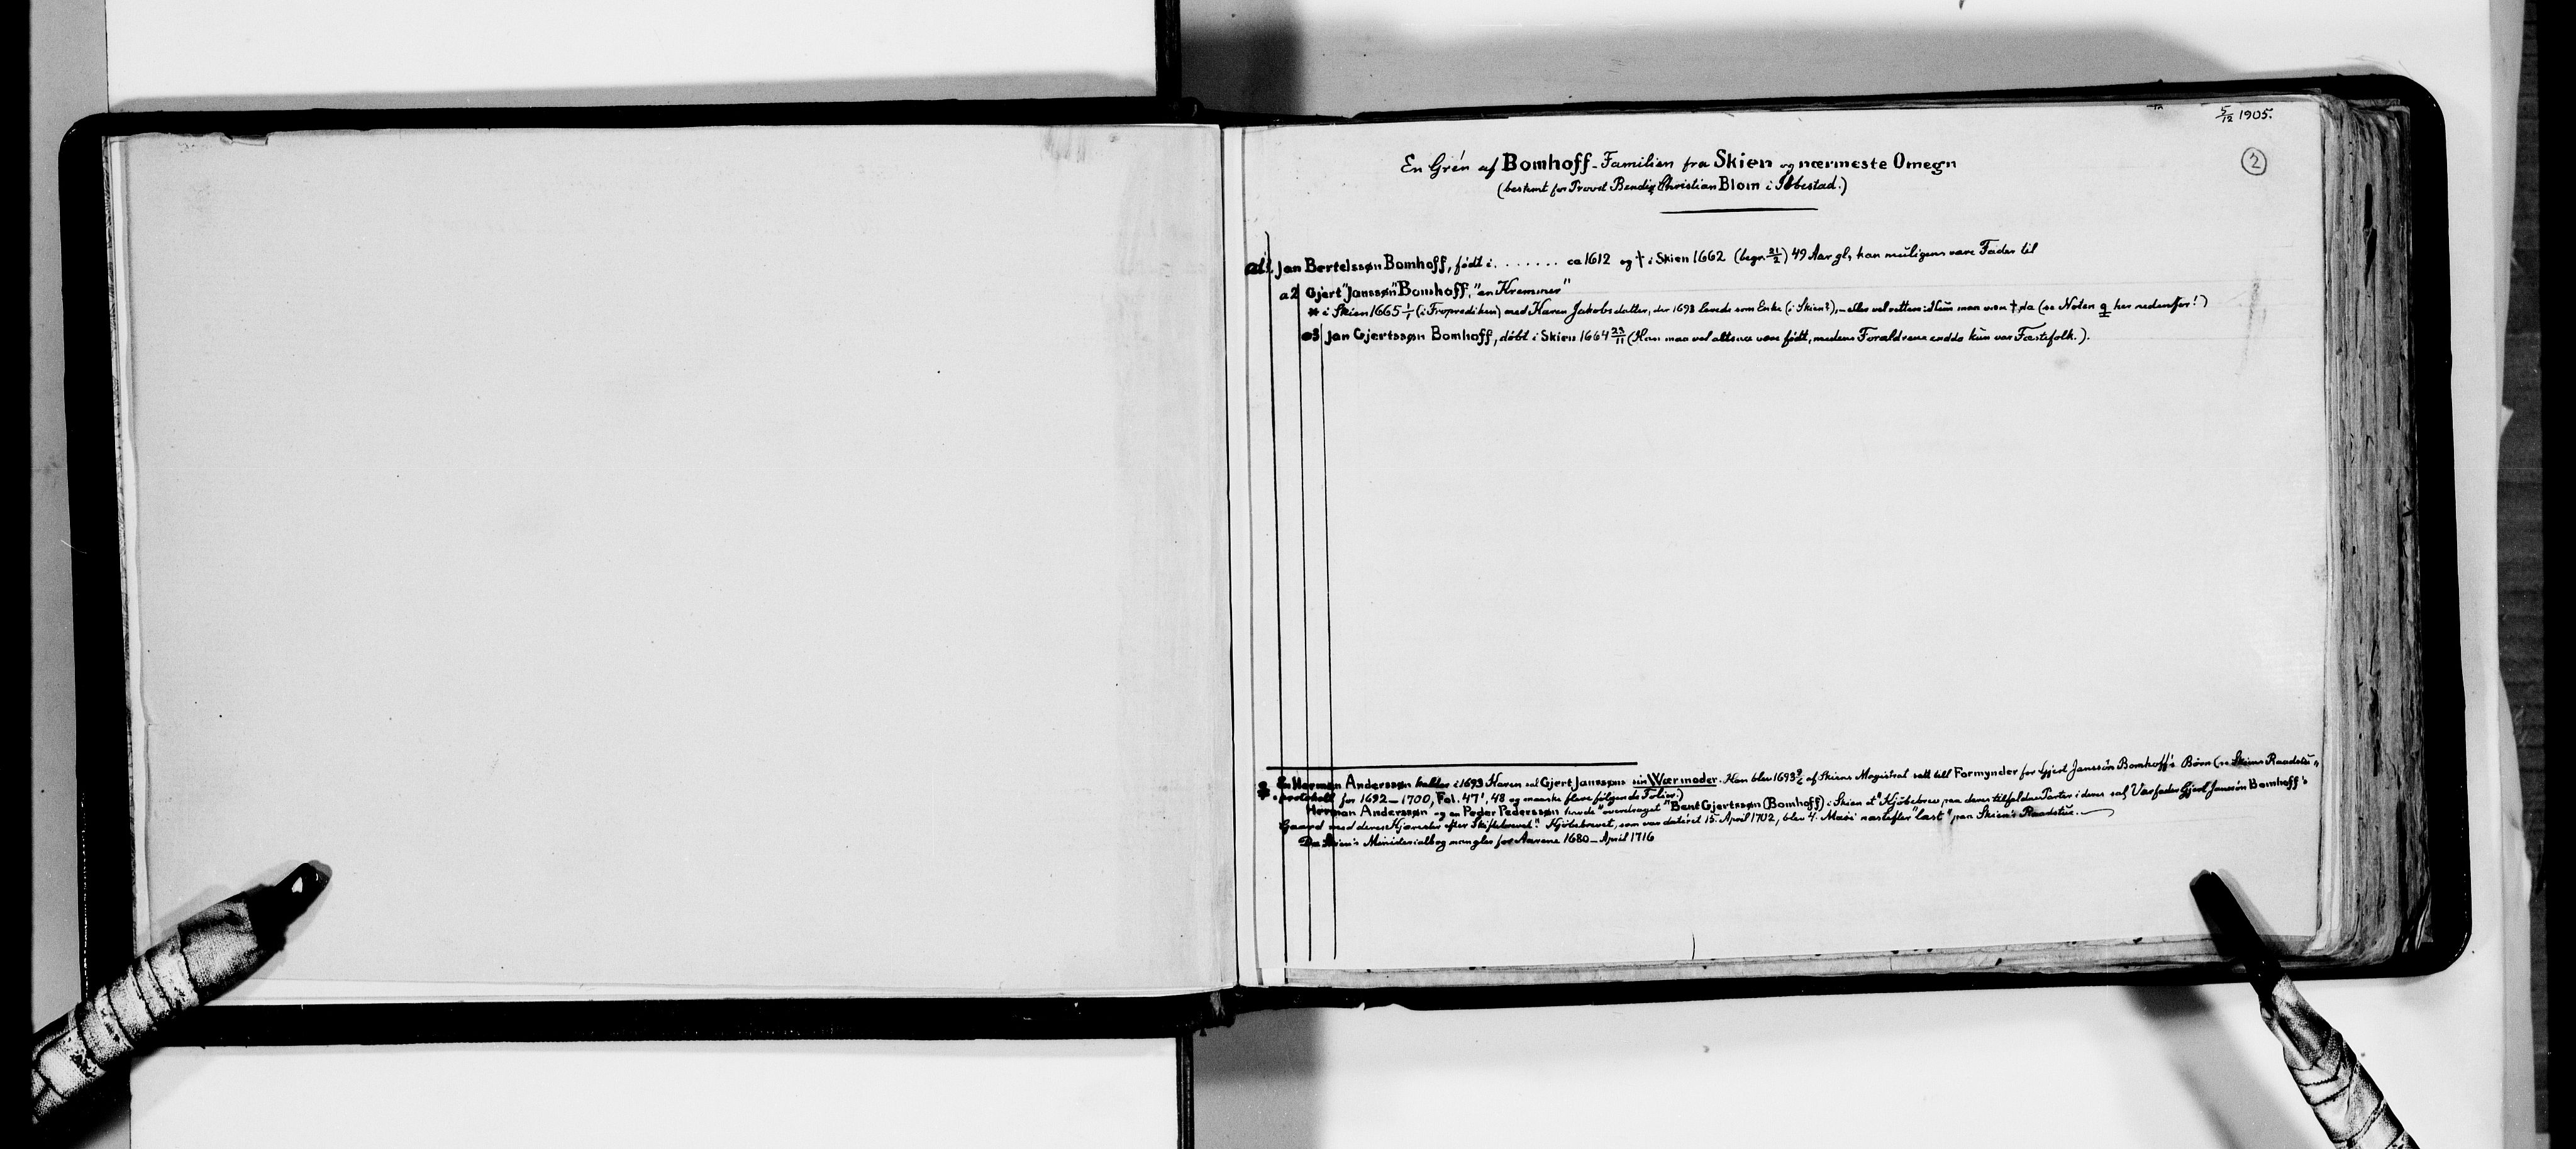 5/12 1905.
2
En Grén af Bomhoff-Familien fra Skien og nærmeste Omegn
(bestemt for Provst Bendix Christian Blom i Ibbestad.)
a1 Jan Bertelssøn Bomhoff, født i . . . . . . . ca 1612 og † i Skien 1662 (begr. 21/2) 49 Aar gl, kan muligens være Fader til
a2 Gjert "Janssøn" Bomhoff, "en Kremmer"
* i Skien 1665 1/1 (i Froprædiken) med Karen Jakobsdatter, der 1693 levede som Enke (i Skien?), – eller vel rettere: Hun maa være † da (se Noten q her nedenfor!)
a3 Jan Gjertssøn Bomhoff, døbt i Skien 1664 23/11 (Han maa vel altsaa være født, medens Forældrene endda kun var Fæstefolk.).
En Herman Anderssøn kalder i 1693 Karen sal Gjert Janssøns sin Værmoder. Han blev 1693 af Skiens Magistrat satt till Formynder for Gjert Janssøn Bomhoff's Børn (se Skiens Raadstu-
protokoll for 1692–1700, Fol. 47', 48 og maaske flere følgende Folier.)
Herman Anderssøn og en Peder Pederssøn havde "overdraget" Bent Gjertssøn (Bomhoff) i Skien et "Kjöbebrev paa deres tilfaldne Parter i deres sal. Værfader Gjert Janssön Bomhoff's
Gaard med deres Kjærester efter Skiftebrevet." Kjöbebrevet, som var datéret 15. April 1702, blev 4. Maii næstefter "læst" paa Skien's Raadstue.
Da Skien's Ministerialbog mangler for Aarene 1680–April 1716